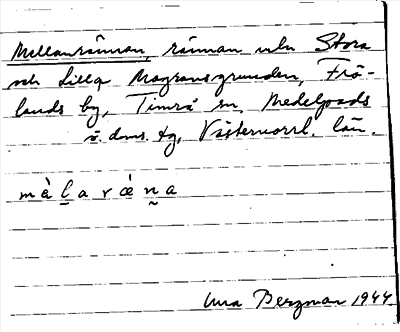 Mellanrännan, rännan mln Stora
och Lilla Magransgrunden, Frö-
lands by, Timrå sn, Medelpads
ö. doms. tg, Västernorrl. län.
m à l̠ a r æ̀ n̰ a
Bergman 1944